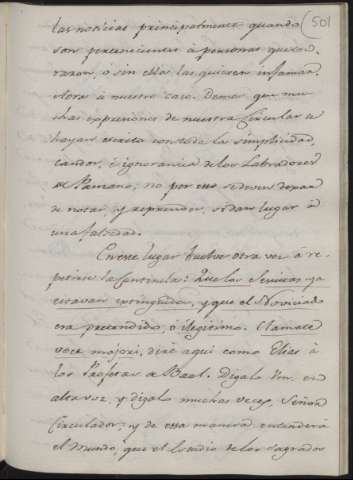 501
las noticias principalmente quando
son pertenecientes à personas que con
razon, o sin ella las quieren infamar.
Ahora à nuestro caso. Demos que mu-
chas expresiones de nuestra Circular se
hayan escrito con toda la simplicidad,
candor, è ignorancia de los Labradores
de no por esso se deven dexar
de notar, y reprender, si dan lugar à
una falsedad.
En este lugar buelve otra vez à re-
petirse la Cantinela: Que los Jesuitas ya
estavan extinguidos, y que el Noviciado
era pretendido, ò ilegitimo. Clamate
voce majori, dirè aqui como Elias à
los Profetas de Baal. Digalo Vm. en
alta voz, y digalo muchas veces, Señor
Circulador, y de essa manera entenderà
el Mundo, que el Estudio de los Sagrados